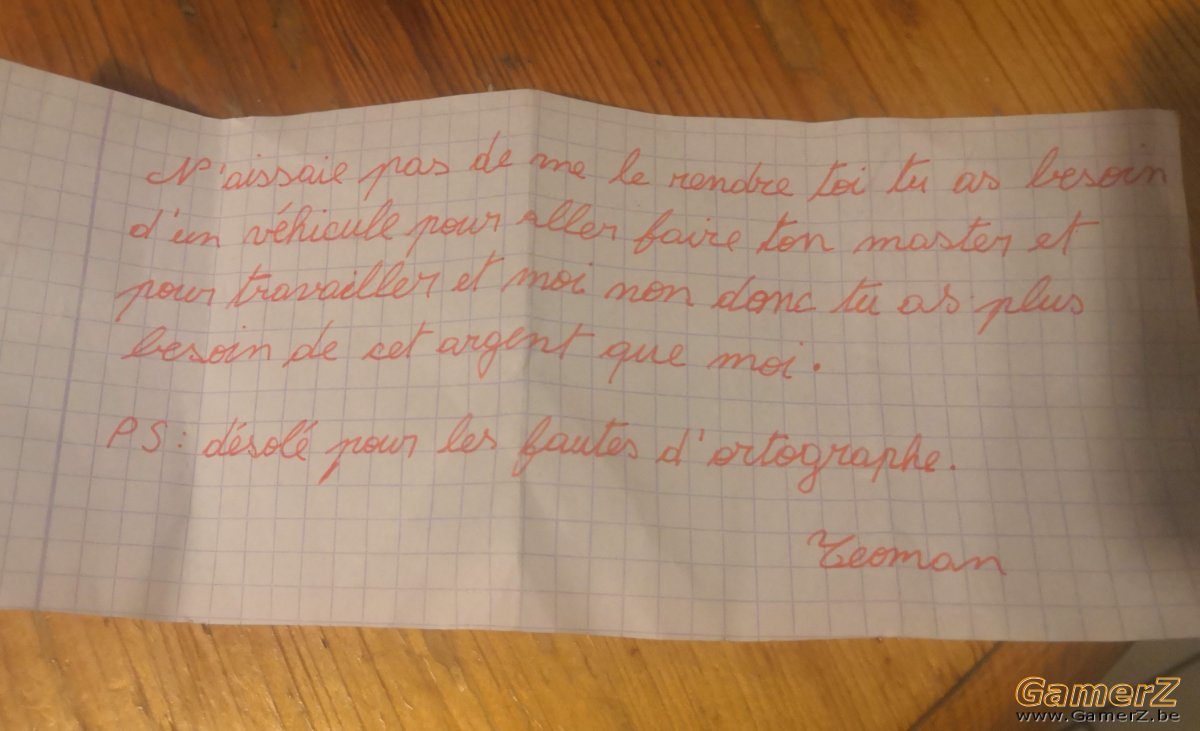 N'aissaie pas de me le rendre toi tu as besoin
d'un véhicule pour aller faire ton master et
pour travailler et moi non donc tu as plus
besoin de cet argent que moi.
PS: désolé pour les fautes d'ortographe.
Teoman
GamerZ
www.GamerZ.be